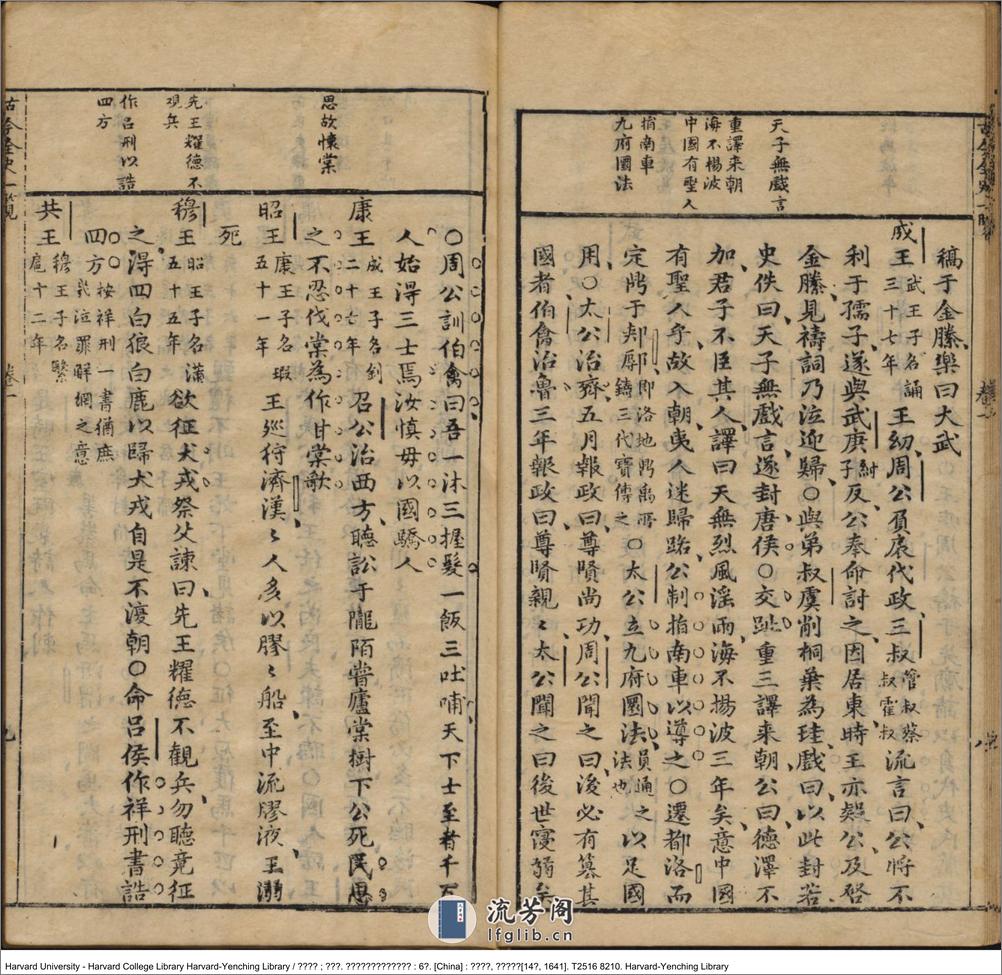 天子無戲言
重譯來朝
海不楊波
中國有聖人
指南車
九府國法
稿于金縢樂曰大武
成王武王子名誦三十七年王幼周公負扆代政三叔管叔蔡叔霍叔流言曰公將不
利于孺子遂與武庚紂子反公奉命討之因居東時王亦疑公及啓
金縢見禱詞乃泣迎歸○與弟叔虞削桐葉為珪戲曰以此封若
史佚曰天子無戲言遂封唐侯○交趾重三譯來朝公曰德澤不
加君子不臣其人譯曰天無烈風滛雨海不揚波三年矣意中國
有聖人乎故入朝夷人迷歸路公制指南車以導之○遷都洛而
定鼎于郟鄏即洛地鼎禹所鑄三代寶傳之○太公立九府圜法員通之法也以足國
用○太公治齊五月報政曰尊賢尚功周公聞之曰後必有簒其
國者伯禽治魯三年報政曰尊賢親〻太公聞之曰後世寖弱矣
思故懷棠
先王耀德不
觀兵
作呂刑以詰
四方
○周公訓伯禽曰吾一沐三握髮一飯三吐哺天下士至者千万
人始得三士焉汝慎毋以國驕人
康王成王子名釗二十六年召公治西方聽訟于隴陌嘗廬棠樹下公死民思
之不忍伐棠為作甘棠歌
昭王康王子名瑕五十一年王廵狩濟漢〻人多以膠〻船至中流膠液王溺
死
穆王昭王子名滿五十五年欲征犬戎祭父諫曰先王耀德不觀兵勿聽竟征
之得四白狼白鹿以歸犬戎自是不復朝○命呂侯作祥刑書誥
四方按祥刑一書猶庶幾泣罪解網之意
共王穆王子名繄扈十二年
古今全史一覽
卷一
九
流芳阁
lfglib.cn
Harvard University - Harvard College Library Harvard-Yenching Library / ???? ; ???. ????????????? : 6?. [China] : ????, ?????[14?, 1641]. T2516 8210. Harvard-Yenching Library